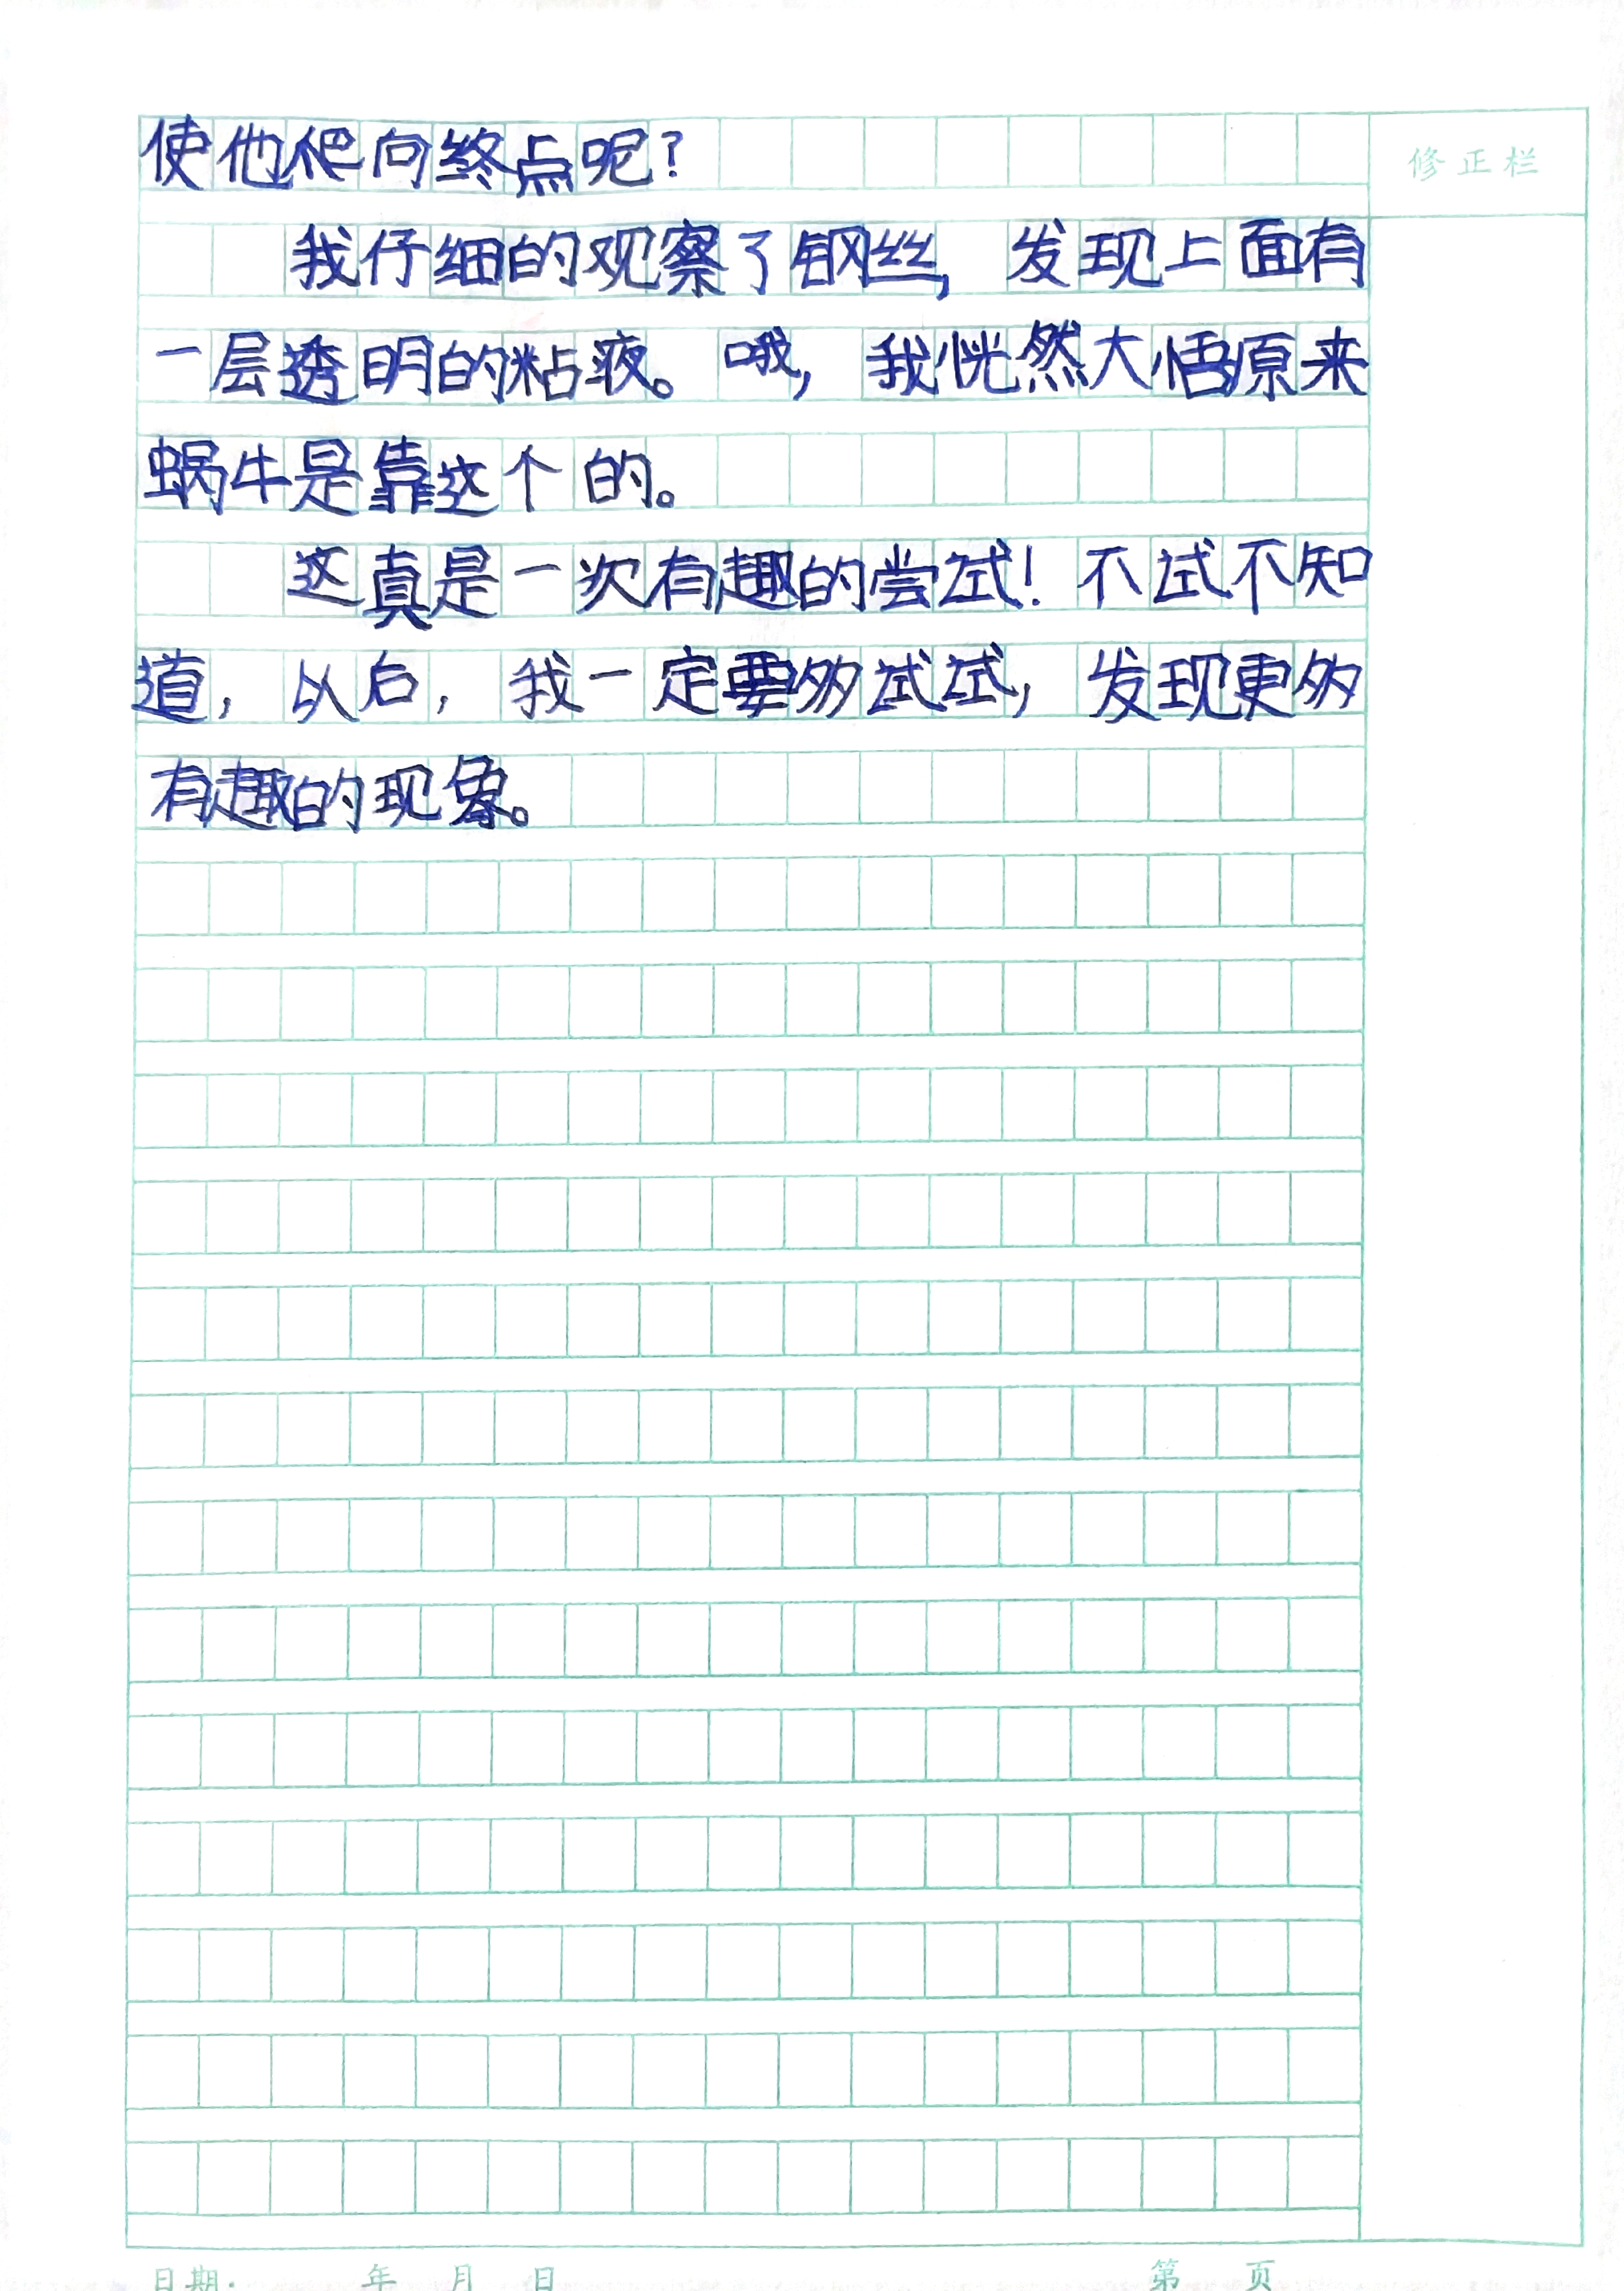 使他爬向终点呢？
修正栏
我仔细的观察了钢丝，发现上面有
一层透明的粘液。哦，我恍然大悟原来
蜗牛是靠这个的。
这真是一次有趣的尝试！不试不知
道，以后，我一定要多试试，发现更多
有趣的现象。
日期： 年 月 日
第 页